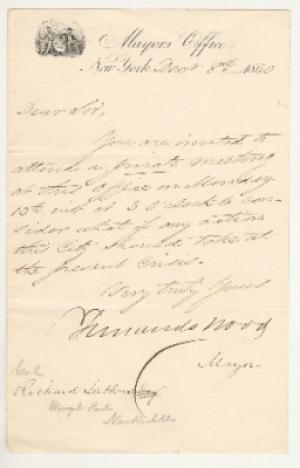 Mayor's Office
New York Decr 8th 1860
Dear Sir,
You are invited to
attend a private meeting
at this Office on Monday
inst at 3 O'clock to con-
sider what if any action
this City should take at
the present Crisis.
Very truly Yours
Fernando Wood
Mayor
Col
Richard Lathers